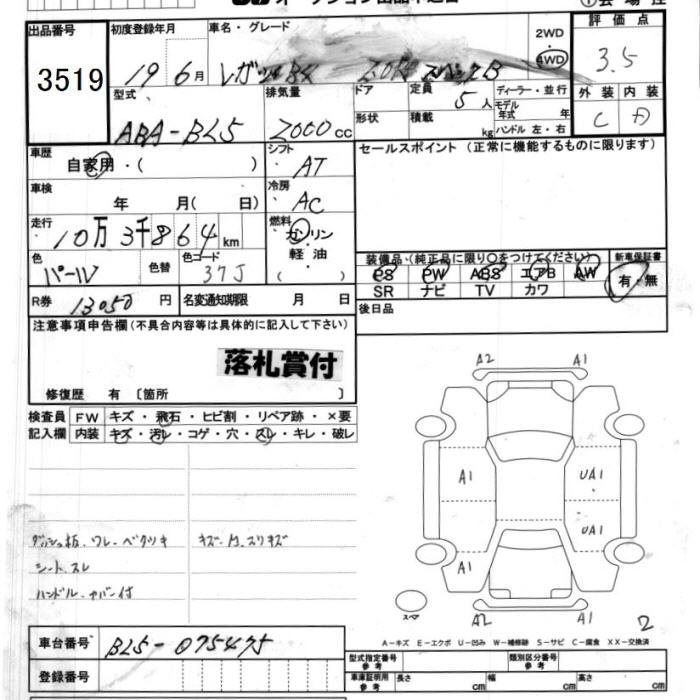 出品番号 初度登録年月 車名・グレード 2WD 評価点
3519 19年 6月 レガシィB4 20R スペックB 4WD 3.5
型式 排気量 ドア 定員 ディーラー・並行 外装 内装
ABA-BL5 2000cc 5人 モデル年式 年 C D
形状 積載 kg ハンドル 左・右
車歴 シフト セールスポイント (正常に機能するものに限ります)
自家用・( ) AT
車検 冷房
年 月( 日) AC
走行 燃料
10万3千864km ガソリン
色 色替 色コード 軽油
パール 37J ( )
装備品 (純正品に限り○をつけてください) 新車保証書
PS PW ABS エアB AW 有・無
SR ナビ TV カワ
R券 13050円 名変通知期限 月 日
後日品
注意事項申告欄(不具合内容等は具体的に記入して下さい)
落札賞付
修復歴 有 〔箇所 〕
検査員 FW キズ・飛石・ヒビ割・リペア跡・×要
記入欄 内装 キズ・汚レ・コゲ・穴・スレ・キレ・破レ
A2 A1
A1 UA1
UA1
A1
A2 A1
ダッシュ板、ワレ・ベタツキ
シート、スレ
ハンドル、カバー付
スペア
2
A-キズ E-エクボ U-凹み W-補修跡 S-サビ C-腐食 XX-交換済
車台番号 BL5-075475
登録番号
型式指定番号 参考 類別区分番号 参考
車庫証明用 参考 長さ cm 幅 cm 高さ cm